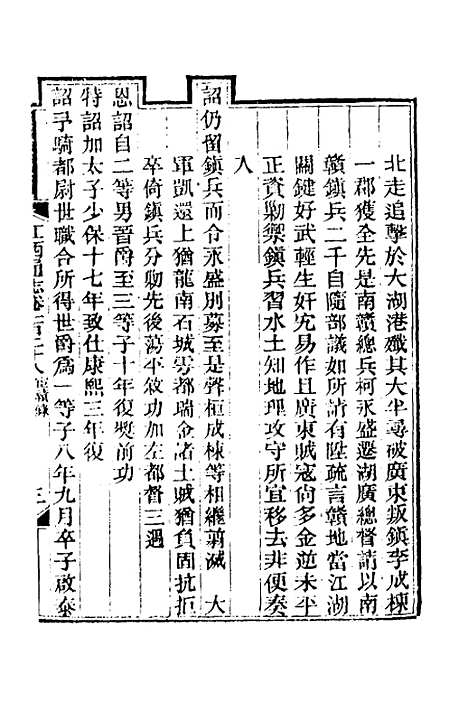 北走追擊於大湖港殲其大半尋破廣東叛鎮李成棟
一郡獲全先是南贛總兵柯永盛遷湖廣總督請以南
贛鎮兵二千自隨部議如所請有陞疏言贛地當江湖
關鍵好武輕生奸宄易作且廣東賊寇尚多金逆未平
正資勦禦鎮兵習水土知地理攻守所宜移去非便奏
入
詔仍留鎮兵而令永盛別募至是聲桓成棟等相繼翦滅　大
軍凱還上猶龍南石城雩都瑞金諸土賊猶負固抗拒
卒倚鎮兵分勦先後蕩平敘功加左都督三遇
恩詔自二等男晉爵至三等子十年復獎前功
特詔加太子少保十七年致仕康熙三年復
詔予騎都尉世職合所得世爵爲一等子八年九月卒子啟泰
江西通志卷一百二十八 宦績錄 三